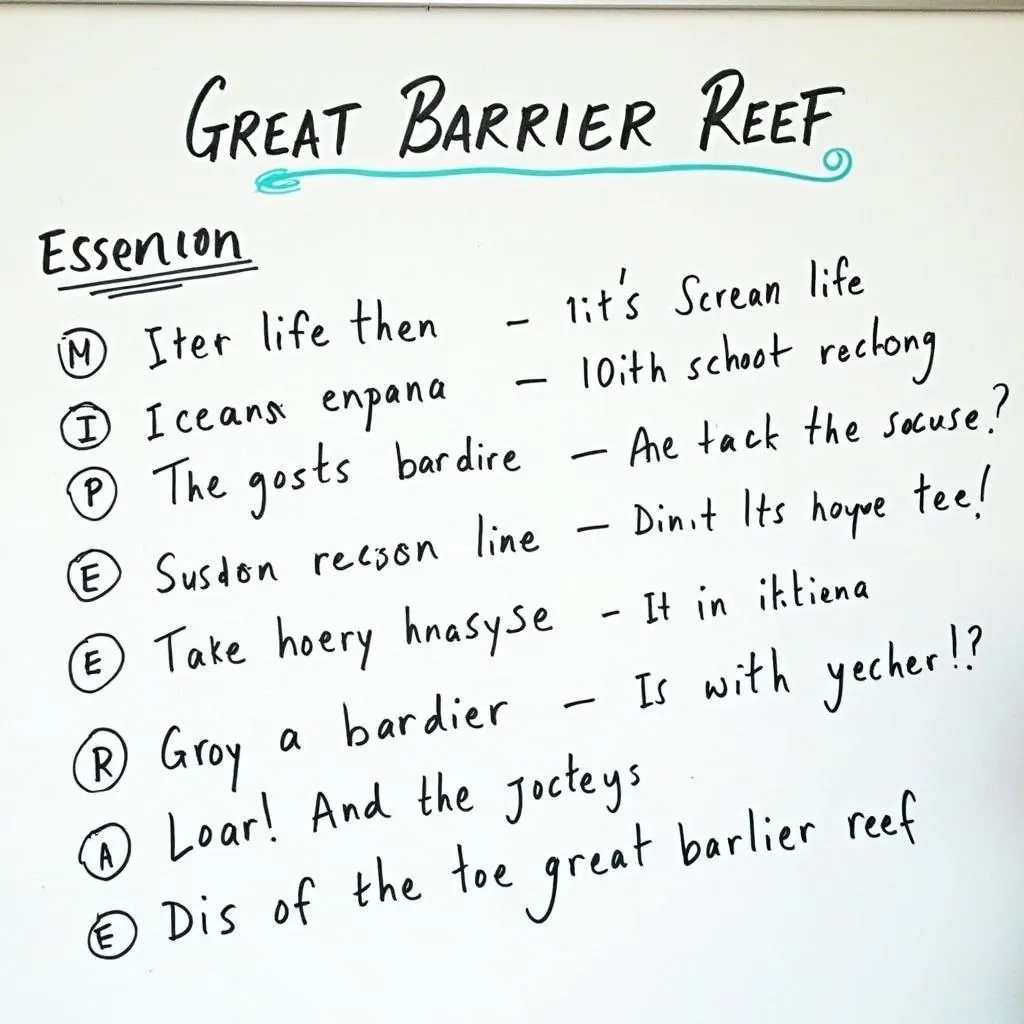 GREAT BARRIER REEF
Essenıon
M Iter life then - 1it's Screan life
I Iceans enpana - 10ith schoot rechong
P The gosts bardire - Ane tack the socuse?
E Susdon recson line - Din.t Its hoyve tee!
E Take hoery hnasyse - It in iktiena
R Groy a bardier - Is with yecher!?
A Loar! And the jocteys
E Dis of the toe great barlier reef